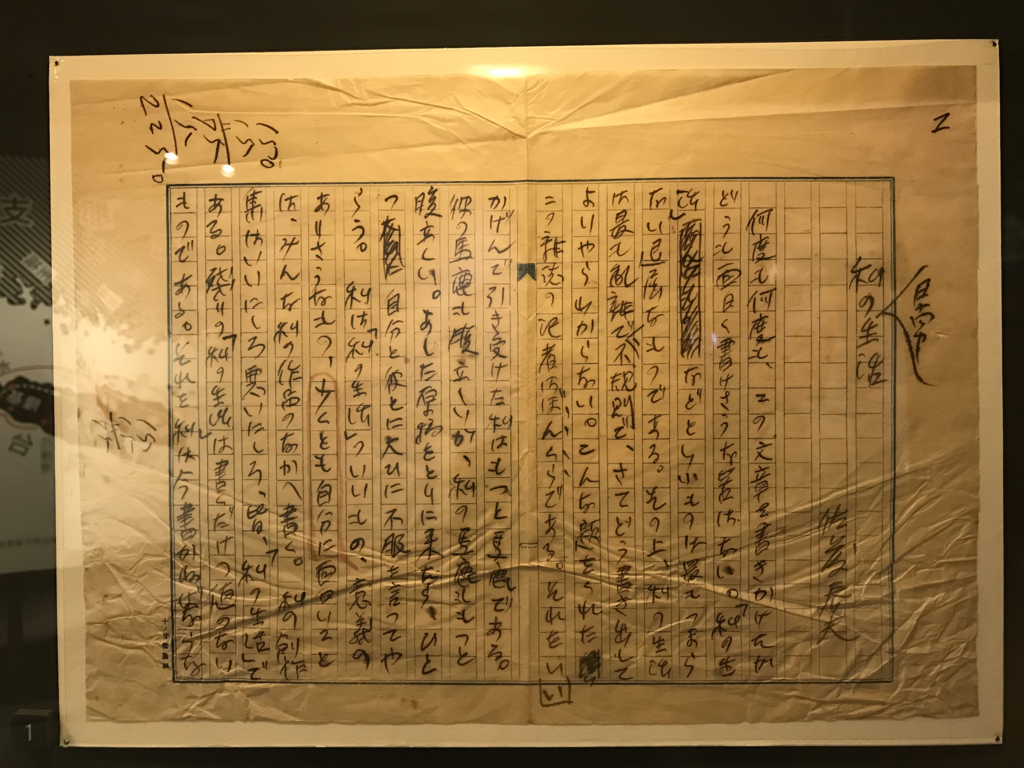 馬
私の生活
佐藤春夫
何度も何度も、この文章を書きかけたが
どうも面白く書けさうな筈はない。「私の生
活」などといふものは最もつまら
ない退屈なものである。その上、「私の生活」
は最も乱雑で不規則で、さてどう書き出して
よいやら分からない。こんな題をくれた
この雑誌の記者はぼんくらである。それをい
い
かげんで引き受けた私はもつと馬鹿である。
彼の馬鹿も腹立しいが、私の馬鹿はもつと
腹立しい。よした原稿をとりに来たす、ひと
つ 自分と彼とに大ひに不服を言つてや
らう。 私は「私の生活」のいいもの、意義の
ありさうなもの、少くとも自分に面白いこと
は、みんな私の作品のなかへ書く。私の創作
集はいいにしろ悪いにしろ、皆、「私の生活」で
ある。残りの「私の生活」は書くだけの値のない
ものである。それを私は今書かねばならうな
2
150
15
225-0
1
支
台